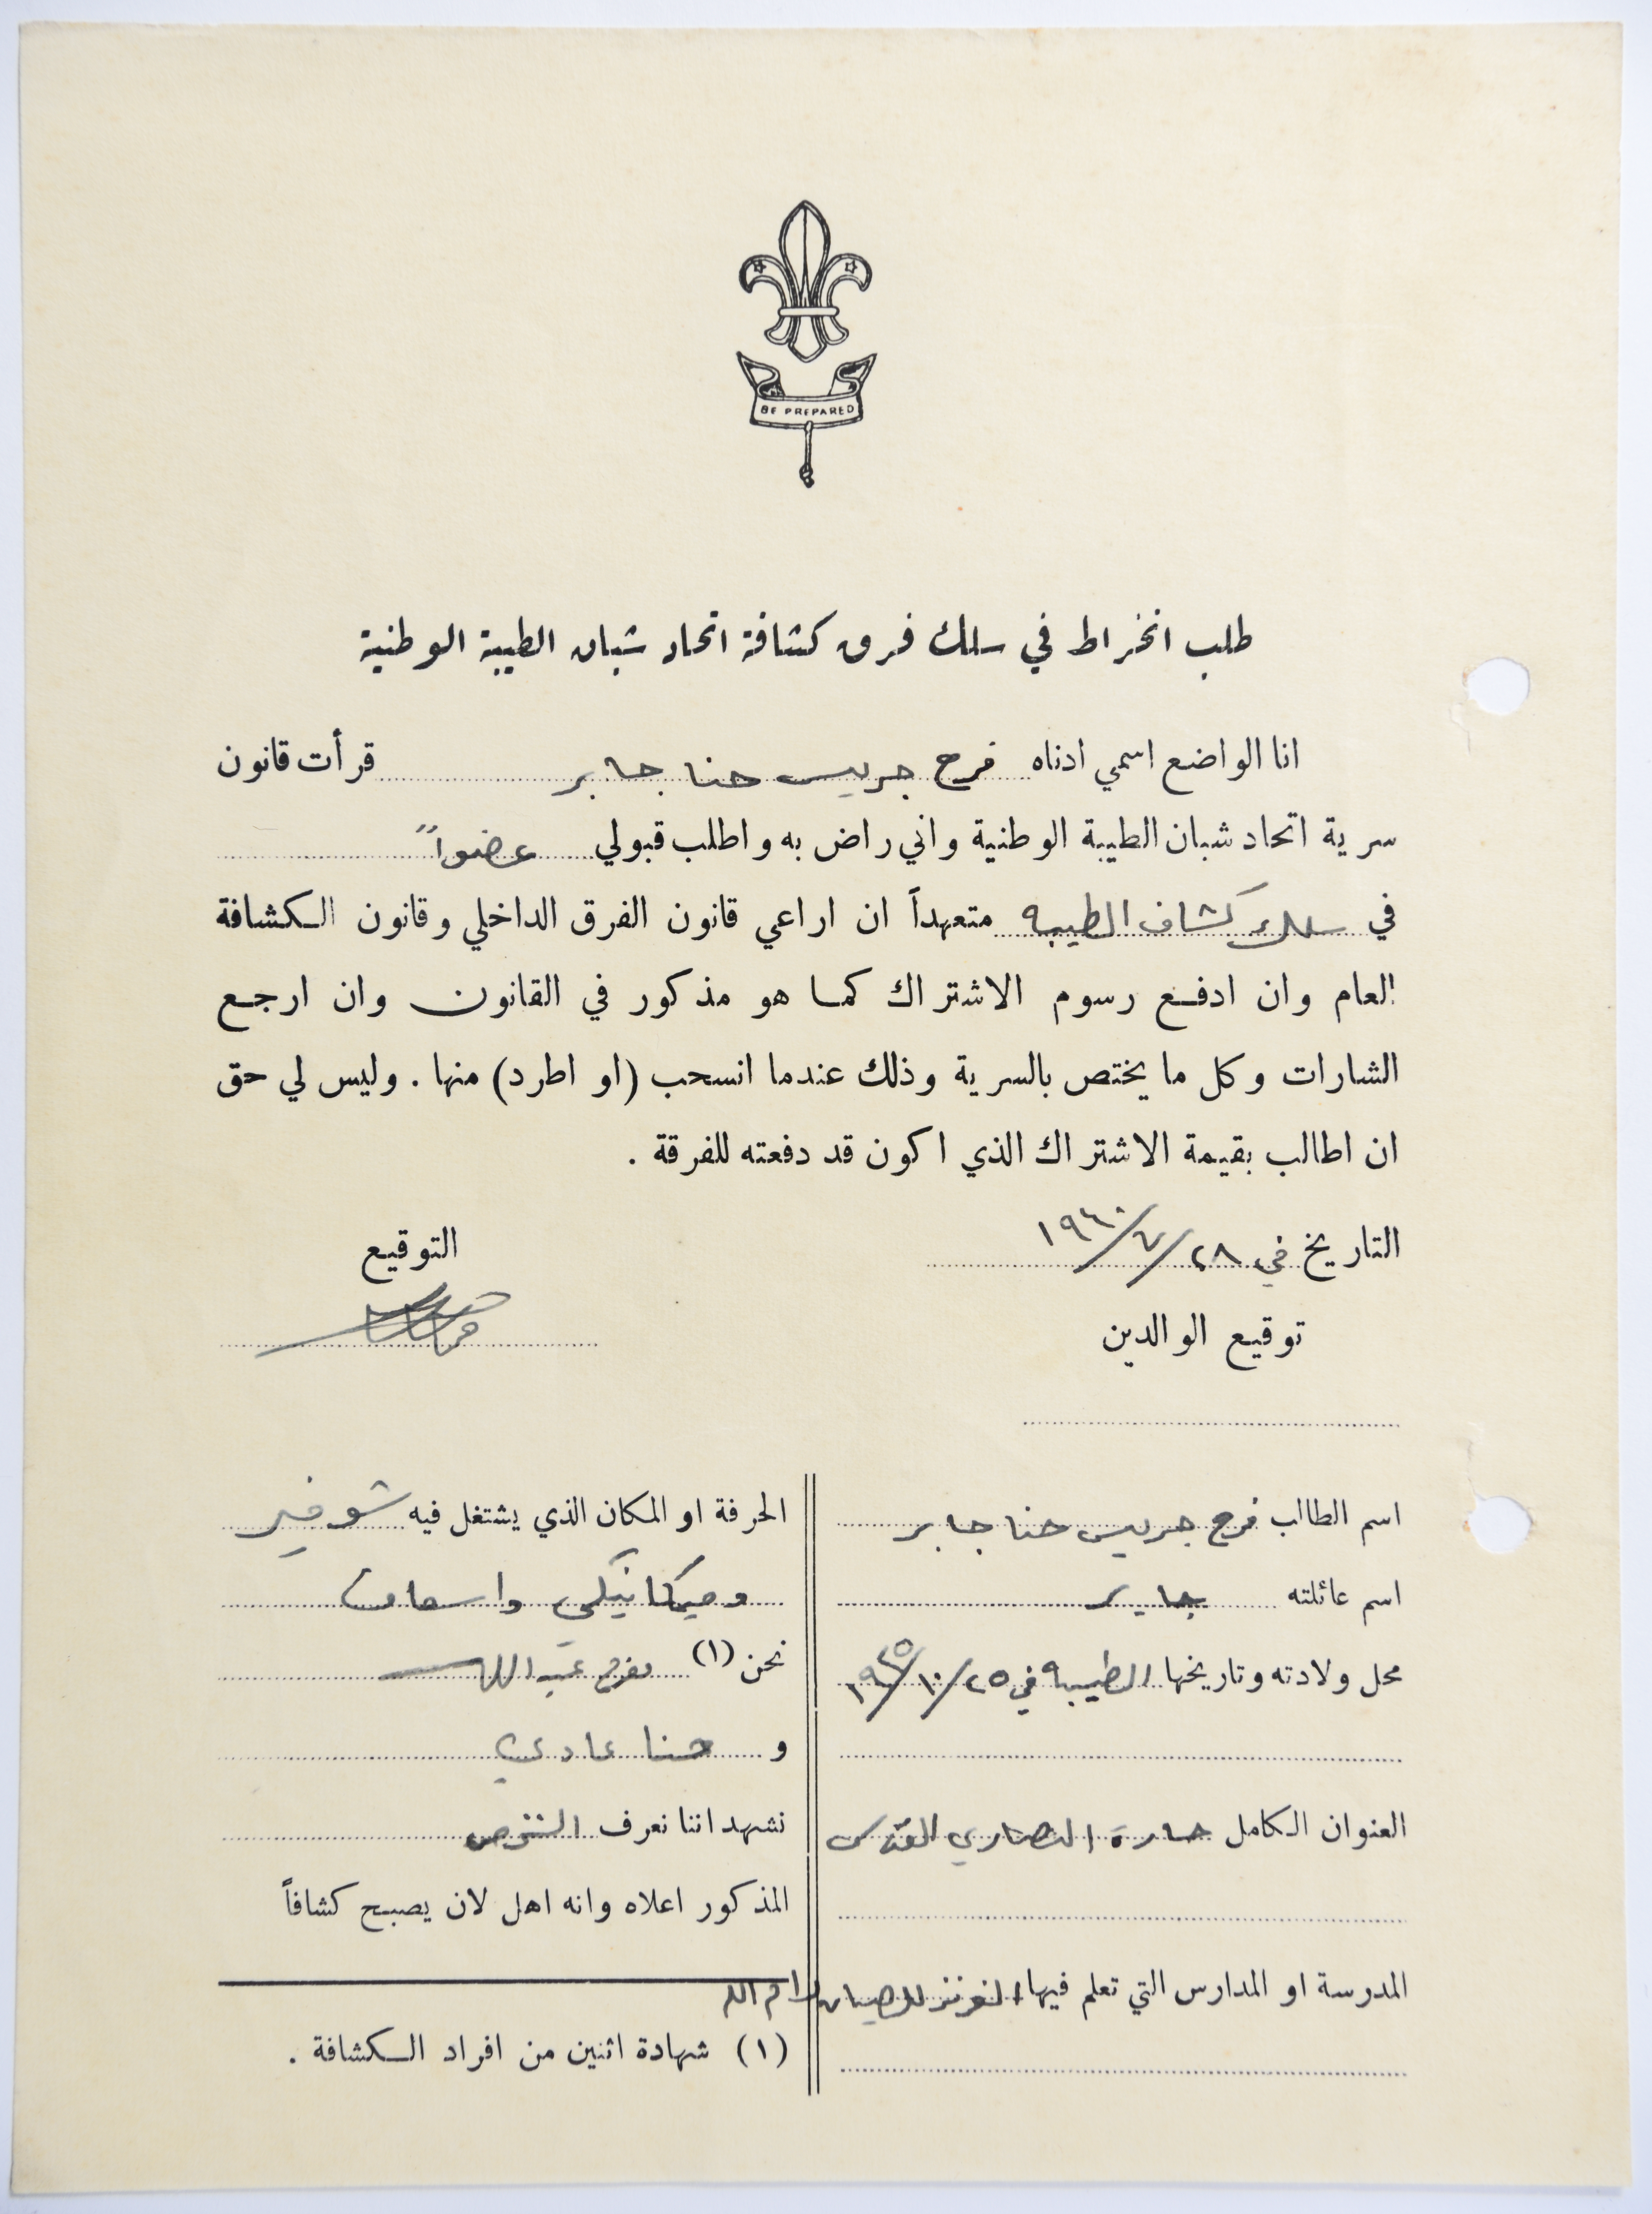 BE PREPARED
طلب انخراط في سلك فرق كشافة اتحاد شبان الطيبة الوطنية
انا الواضع اسمي ادناه فرح جريس حنا جابر قرأت قانون
سرية اتحاد شبان الطيبة الوطنية واني راض به واطلب قبولي عضواً
في سلك كشاف الطيبه متعهداً ان اراعي قانون الفرق الداخلي وقانون الكشافة
العام وان ادفع رسوم الاشتراك كما هو مذكور في القانون وان ارجع
الشارات وكل ما يختص بالسرية وذلك عندما انسحب (او اطرد) منها . وليس لي حق
ان اطالب بقيمة الاشتراك الذي اكون قد دفعته للفرقة .
التاريخ في ٢٨/٧/١٩٦٠
التوقيع
توقيع الوالدين
اسم الطالب فرح جريس حنا جابر
اسم عائلته جابر
محل ولادته وتاريخها الطيبه في ٢٥/١٠/١٩٣٥
العنوان الكامل حارة النصارى القدس
المدرسة او المدارس التي تعلم فيها الفرندز للصبيان رام الله
الحرفة او المكان الذي يشتغل فيه شوفير
وميكانيكي واسعاف
نحن (١) مفرح عبدالله
و حنا عادي
نشهد اننا نعرف الشخص
المذكور اعلاه وانه اهل لان يصبح كشافاً
(١) شهادة اثنين من افراد الكشافة .